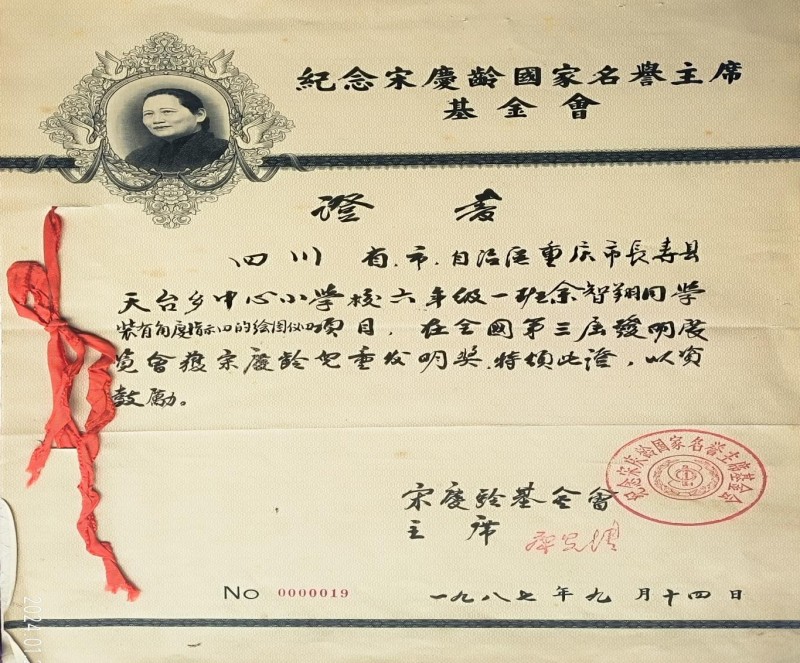 紀念宋慶齡國家名譽主席
基金會
證書
四川 省.市.自治区重庆市長寿县
天台乡中心小学校六年级一班余智翔同学
装有角度指示口的绘图仪 项目，在全國第三届發明展
览會獲宋慶龄兒童发明奖.特頒此證，以资
鼓励。
纪念宋庆龄国家名誉主席基金会
宋慶齡基金會
主席
No 0000019
一九八七年九月十四日
2024.01